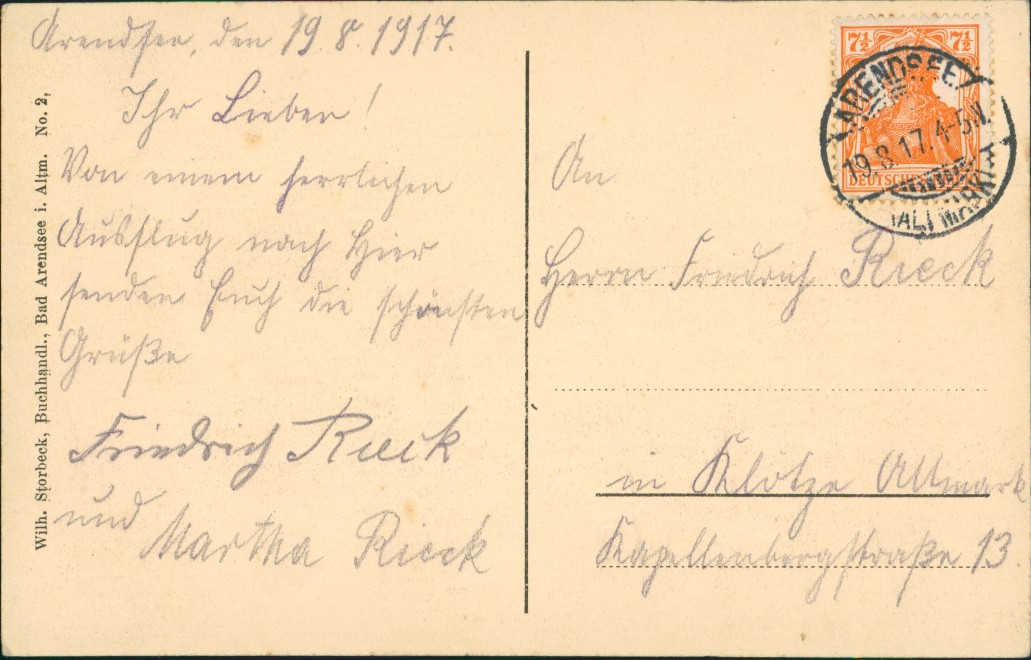 Arendsee, den 19.8.1917.
Ihr Lieben!
Von einem herrlichen
Ausflug nach Hier
senden Euch die schönsten
Grüße
Friedrich Rieck
und
Martha Rieck
Wilh. Storbeck, Buchhandl., Bad Arendsee i. Altm. No. 2.
7½ 7½
DEUTSCHES
ARENDSEE
19.8.17.4-5N.
(ALTMARK)
An
Herrn Friedrich Rieck
in Klötze Altmark
Kapellenbergstraße 13.